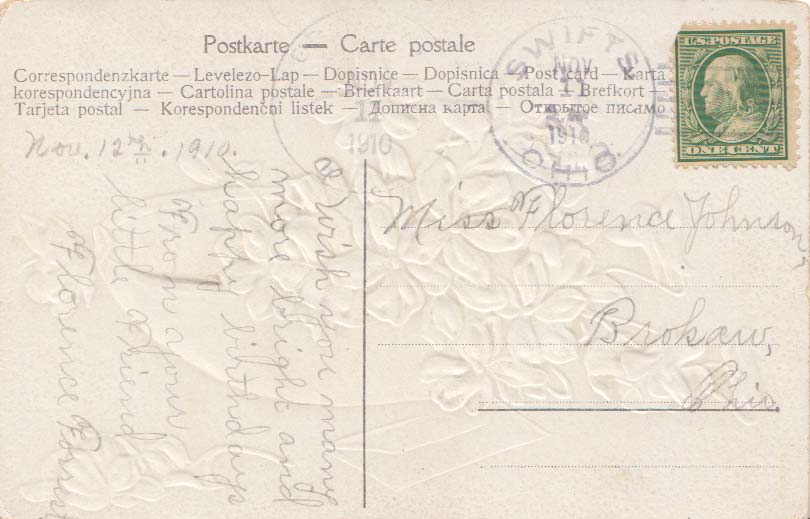 Postkarte — Carte postale
Correspondenzkarte — Levelezo-Lap — Dopisnice — Dopisnica — Post card — Karta
korespondencyjna — Cartolina postale — Briefkaart — Carta postala — Brefkort —
Tarjeta postal — Korespondenčni listek — Дописна карта — Открытое письмо
SWIFTS
NOV
11
1910
OHIO.
U.S. POSTAGE
ONE CENT
11
1910
Nov. 12 . 1910.
I wish you many
more bright and
happy birthdays
From your
little Friend
Florence
Miss Florence Johnson,
Brokaw,
Ohio.